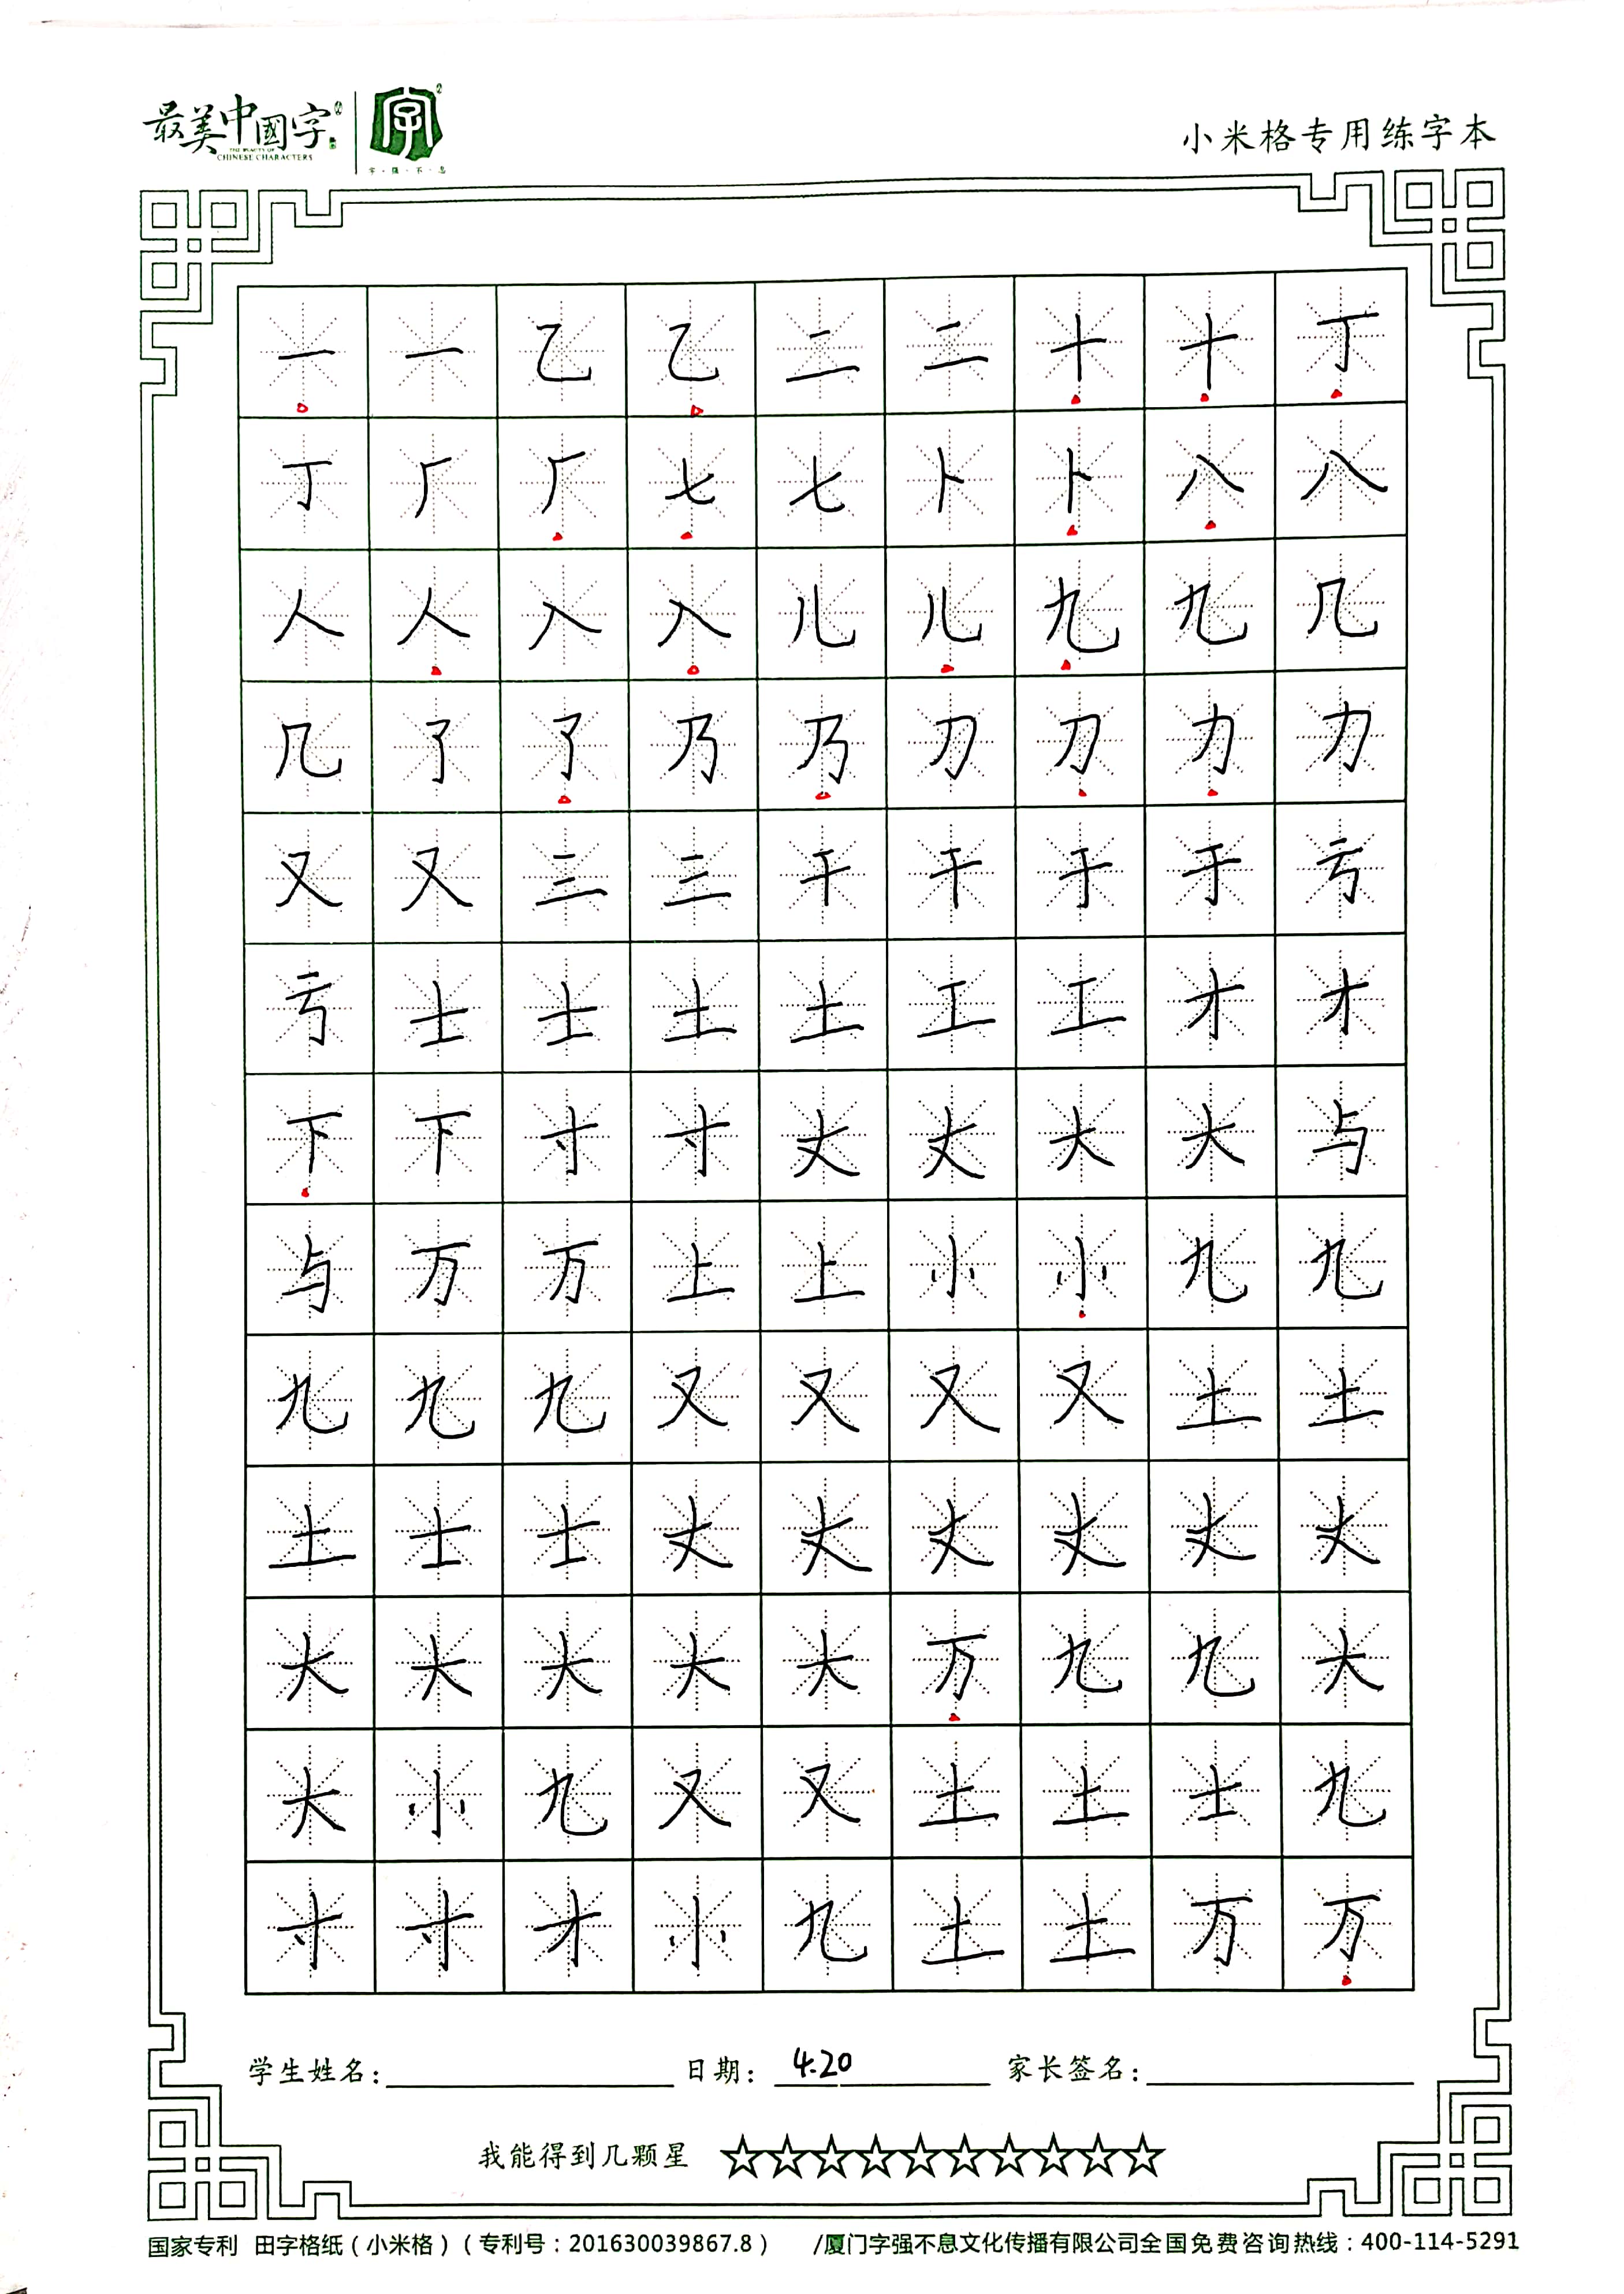 最美中國字
THE BEAUTY OF
CHINESE CHARACTERS
字
字·强·不·息
小米格专用练字本
一 一 乙 乙 二 二 十 十 丁
丁 厂 厂 七 七 卜 卜 八 八
人 人 入 入 儿 儿 九 九 几
几 了 了 乃 乃 刀 刀 力 力
又 又 三 三 干 干 于 于 亏
亏 士 士 土 土 工 工 才 才
下 下 寸 寸 丈 丈 大 大 与
与 万 万 上 上 小 小 九 九
九 九 九 又 又 又 又 土 土
土 士 士 丈 丈 丈 丈 丈 丈
大 大 大 大 大 万 九 九 大
大 小 九 又 又 土 土 士 九
寸 寸 才 小 九 土 土 万 万
学生姓名: 日期: 4.20 家长签名:
我能得到几颗星 ☆☆☆☆☆☆☆☆☆☆
国家专利 田字格纸(小米格)(专利号:201630039867.8) /厦门字强不息文化传播有限公司全国免费咨询热线:400-114-5291